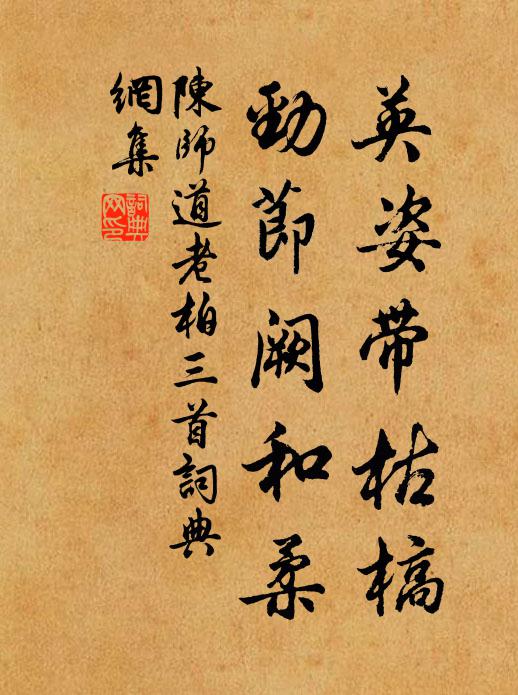 英姿带枯槁
勁莭阙和柔
陳師道老柏三首詞典
網集
詞典
网印